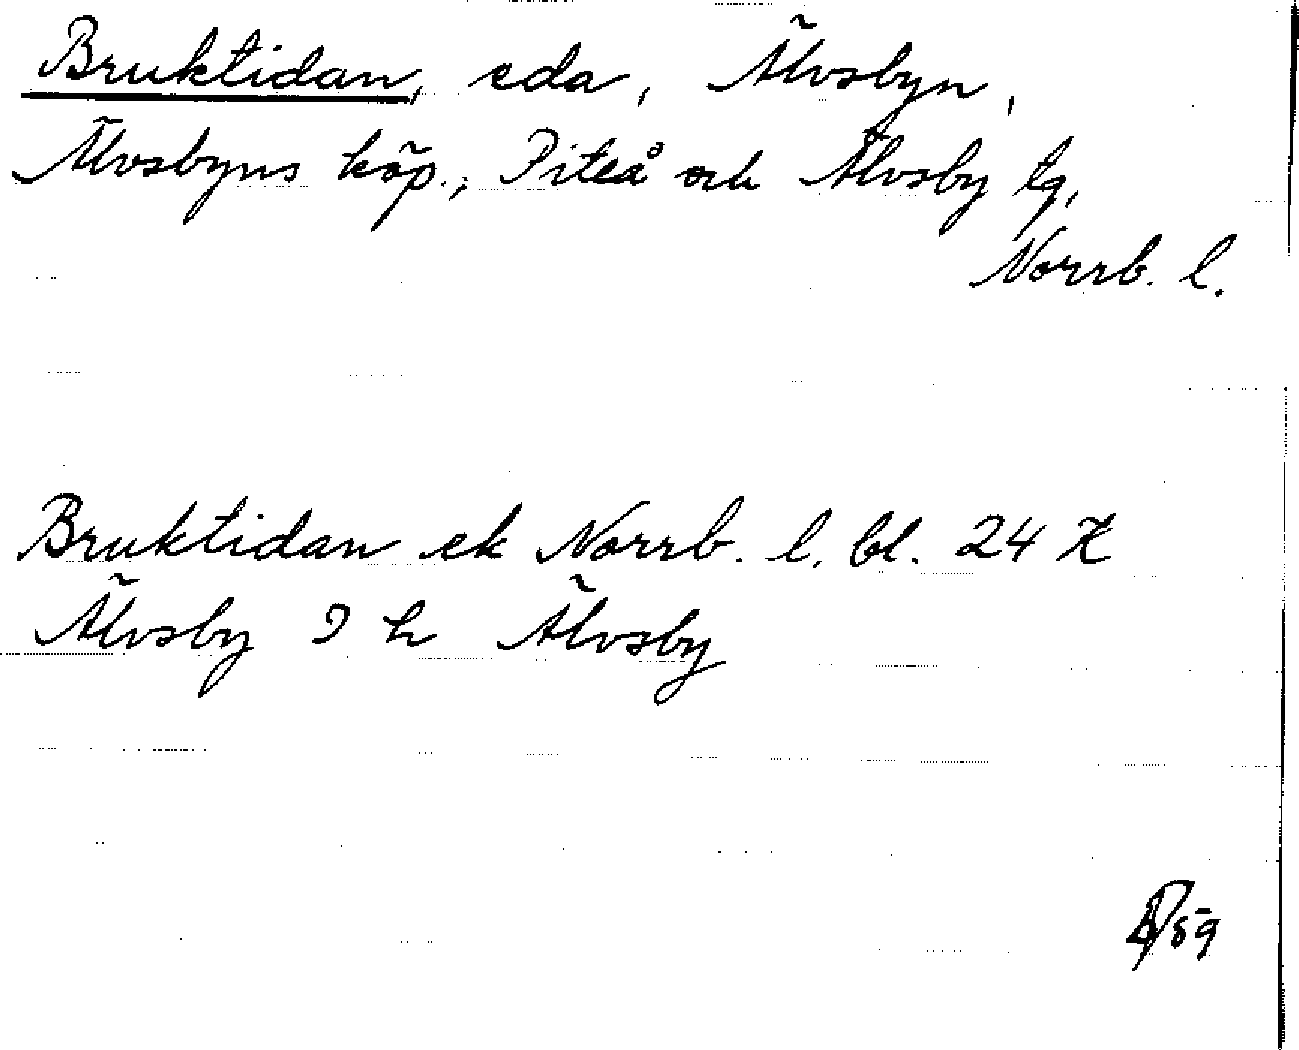 Bruktidan, eda, Älvsbyn,
Älvsbyns köp., Piteå och Älvsby tg,
Norrb. l.
Bruktidan ek Norrb. l. bl. 24 K
Älvsby J h Älvsby
59